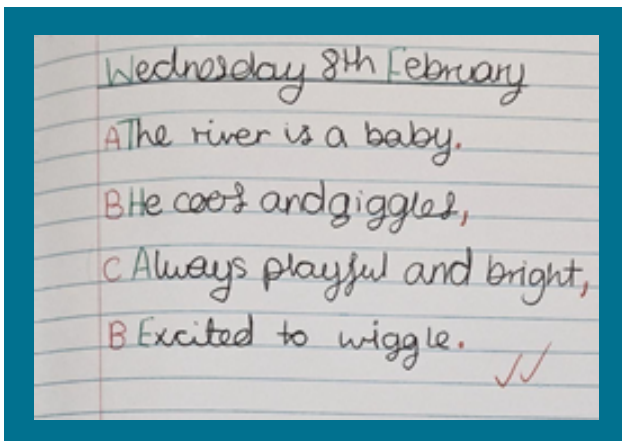 Wednesday 8th February
A The river is a baby.
B He coos and giggles,
C Always playful and bright,
B Excited to wiggle.